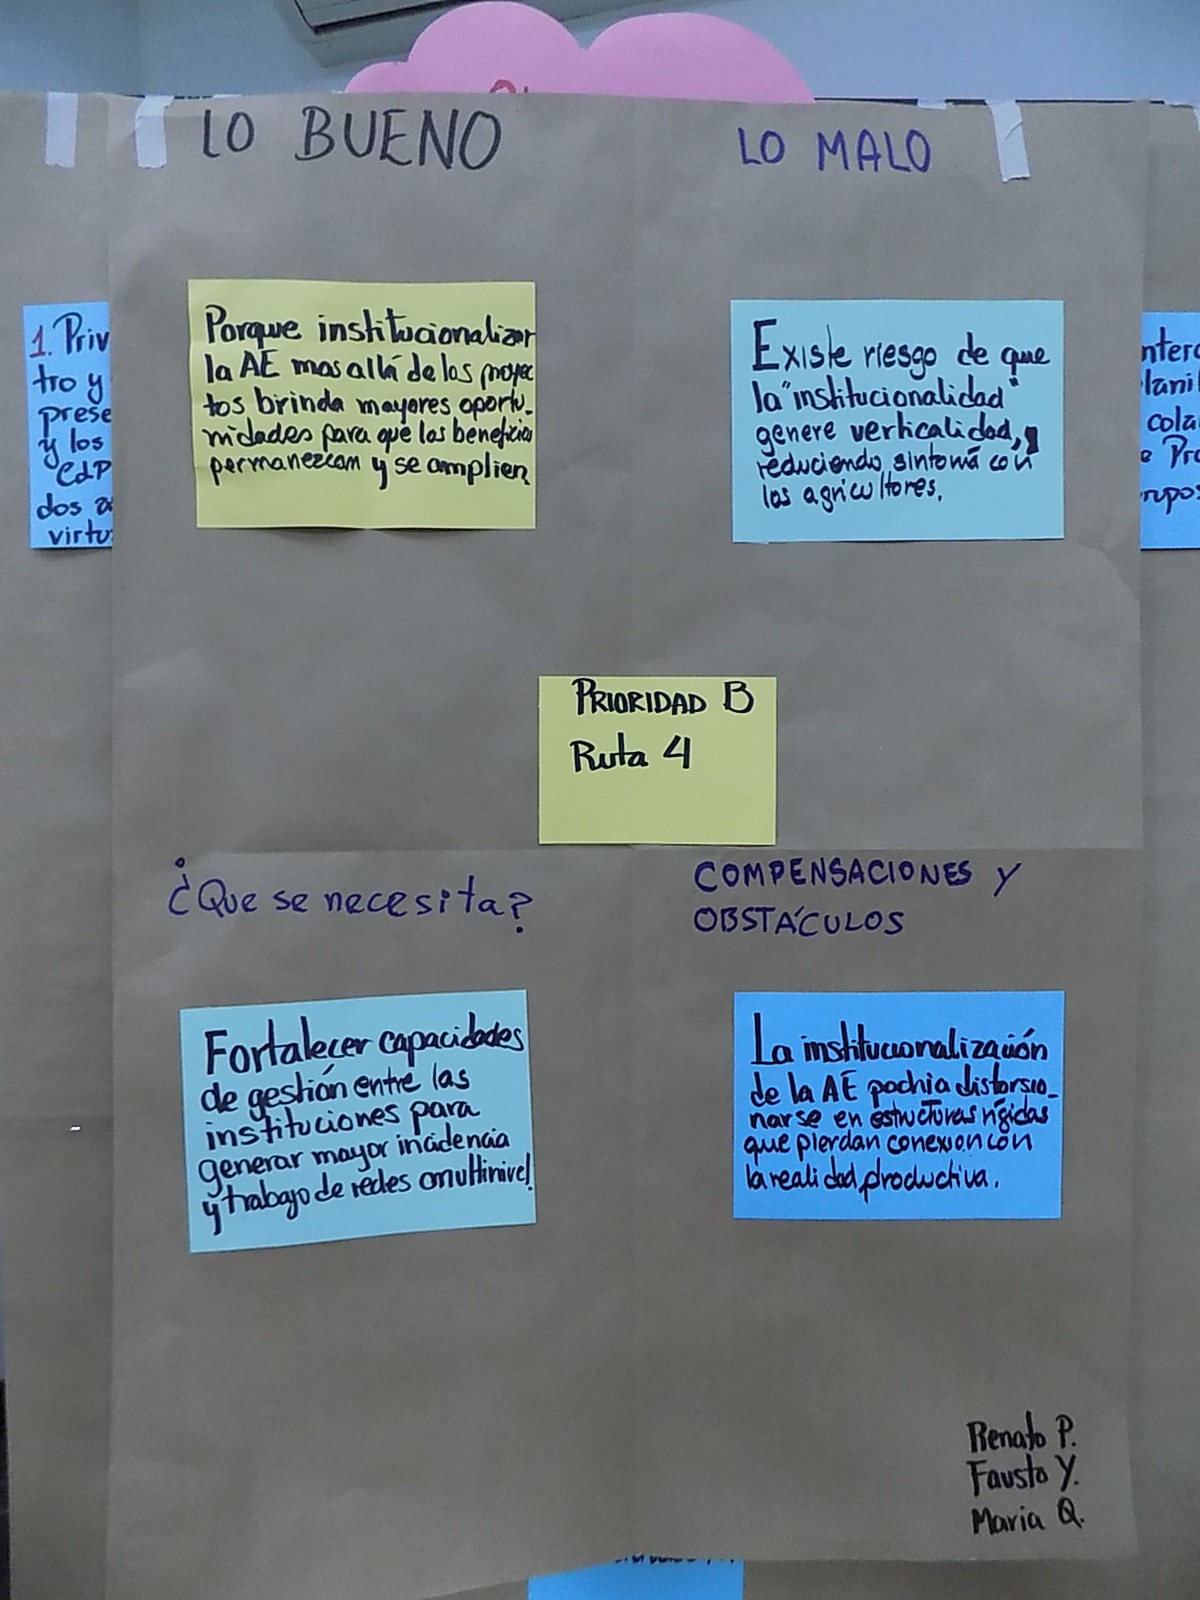 LO BUENO
LO MALO
Porque institucionalizar
la AE mas allá de los proyec
tos brinda mayores oportu_
nidades para que los beneficios
permanezcan y se amplien
Existe riesgo de que
la "institucionalidad"
genere verticalidad,
reduciendo sintomá con
los agricultores.
PRIORIDAD B
Ruta 4
¿Que se necesita?
COMPENSACIONES Y
OBSTÁCULOS
Fortalecer capacidades
de gestión entre las
instituciones para
generar mayor incidencia
y trabajo de redes
La institucionalización
de la AE podria distorsio_
narse en estructuras rígidas
que pierdan conexion con
la realidad productiva.
Renato P.
Fausto Y.
Maria Q.
1. Priv
tro y
prese
y los
CdP
dos a
virtu